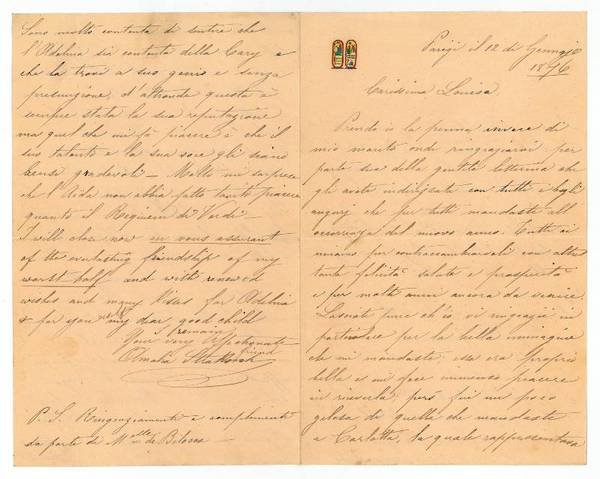 Parigi il 12 di Gennajo
1876
Carissima Louisa.
Prendo io la penna invece di
mio marito onde ringraziarvi per
parte sua della gentile letterina che
gli avete indirizzata con tutti i begli
augurj che per tutti mandaste all
occorrenza del nuovo anno. Tutti ci
uniamo per contraccambiarvili con altret
tante felicità salute e prosperità
e per molti anni ancora da venire.
Lasciate pure ch'io vi ringrazii in
particolare per la bella immagine
che mi mandaste; essa era proprio
bella e mi fece immenso piacere
in riceverla, però fui un poco
gelosa di quella che mandaste
a Carlotta, la quale rappresentava
Sono molto contenta di sentire che
l'Adelina sia contenta della Cary e
che la trovi a suo genio e senza
presunzione, d'altronde questa è
sempre stata la sua reputazione
ma quel che mi fà piacere è che il
suo talento e la sua voce gli siano
graditi – Molto mi sorprese
che l'Aida non abbia fatto tanto piacere
quanto il Requiem di Verdi –
I will close now in vous assurant
of the everlasting friendship of my
worst half and with renewed
wishes and many Kisses for Adelina
& for yourself my dear good child
I remain
Your very affectionate
friend
Amalia Strakosch
P. S. Ringraziamenti e complimenti
da parte di Mlle de Belocca –